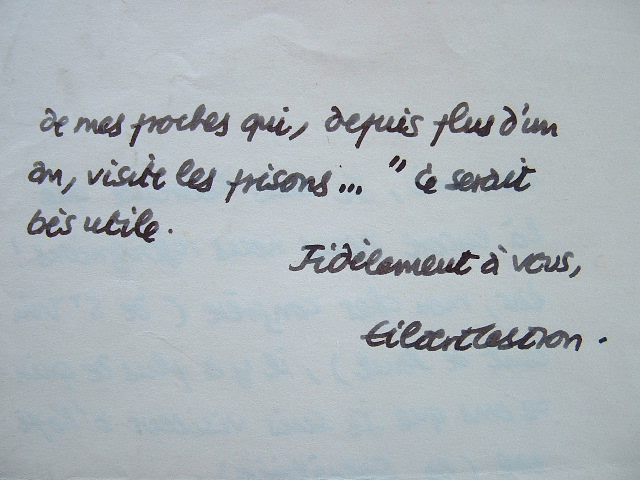 de mes proches qui, depuis plus d'un
an, visite les prisons... " Ce serait
très utile.
Fidèlement à vous,
Gilbert Cesbron.